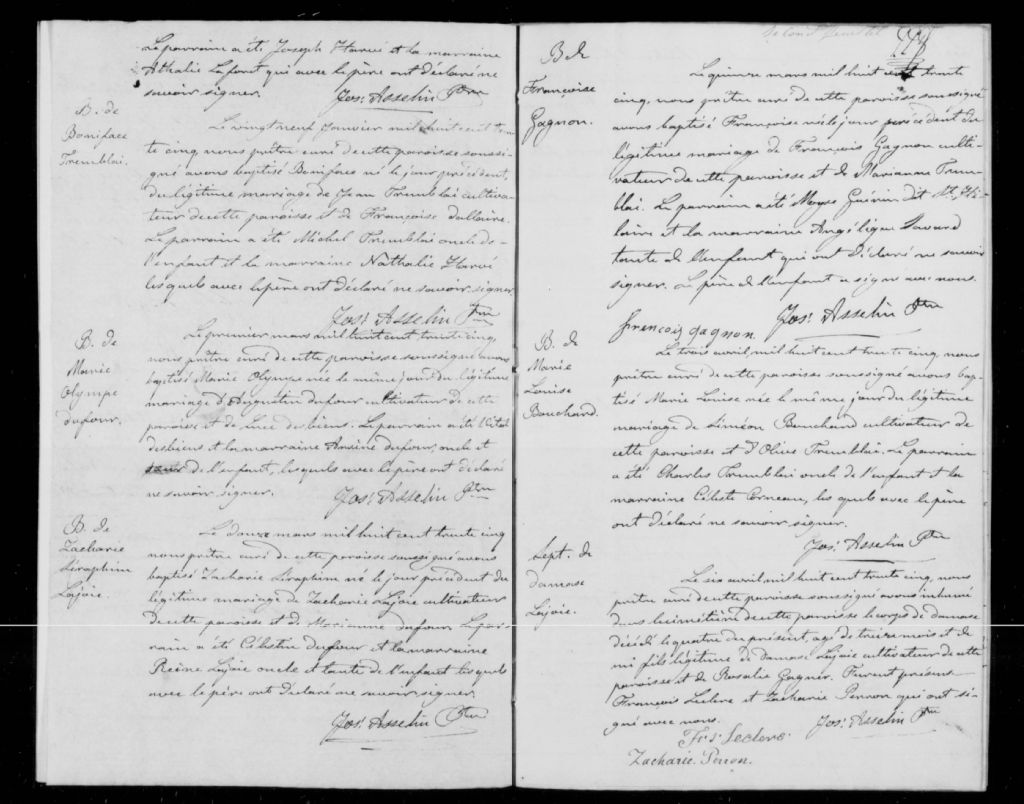 Le parrain a été Joseph Harvé et la marraine
Athalie Laforet qui avec le père ont déclaré ne
savoir signer. Jos: Asselin Ptre
B. de
Boniface
Tremblai.
Le vingt neuf Janvier mil huit cent tren
te cinq, nous prêtre curé de cette paroisse soussi-
gné avons baptisé Boniface né le jour précédent,
du légitime mariage de Jean Tremblai cultiva-
teur de cette paroisse et de Françoise dallaire.
Le parrain a été Michel Tremblai oncle de
l'enfant et la marraine Nathalie Harvé
lesquels avec le père ont déclaré ne savoir signer
Jos: Asselin Ptre
B. de
Marie
Olympe
dufour.
Le premier mars mil huit cent trente cinq,
nous prêtre curé de cette paroisse soussigné avons
baptisé Marie Olympe née le même jour du légitime
mariage d'Augustin dufour cultivateur de cette
paroisse et de Luce desbiens. Le parrain a été
desbiens et la marraine dufour, oncle et
de l'enfant, lesquels avec le père ont déclaré
ne savoir signer. Jos: Asselin Ptre
B. de
Zacharie
Séraphim
Lajoie.
Le douze mars mil huit cent trente cinq
nous prêtre curé de cette paroisse soussigné avons
baptisé Zacharie Séraphim né le jour précédent du
légitime mariage de Zacharie Lajoie cultivateur
de cette paroisse et de Marianne dufour. Le par-
rain a été Célestin dufour et la marraine
Reine Lajoie oncle et tante de l'enfant lesquels
avec le père ont déclaré ne savoir signer.
Jos: Asselin Ptre
B de
Françoise
Gagnon.
Le quinze mars mil huit cent trente
cinq, nous prêtre curé de cette paroisse soussigné
avons baptisé Françoise née le jour précédent du
légitime mariage de François Gagnon culti-
vateur de cette paroisse et de Marianne Trem-
blai. Le parrain a été Moyse Guérin dit St. Hi-
laire et la marraine Angélique Savard
tante de l'enfant qui ont déclaré ne savoir
signer. Le père de l'enfant a signé avec nous.
françois gagnon. Jos: Asselin Ptre
B. de
Marie
Louise
Bouchard.
Le trois avril mil huit cent trente cinq, nous
prêtre curé de cette paroisse soussigné avons bap-
tisé Marie Louise née le même jour du légitime
mariage de Siméon Bouchard cultivateur de
cette paroisse et d'Olive Tremblai. Le parrain
a été Charles Tremblai oncle de l'enfant et la
marraine Céleste Corneau, lesquels avec le père
ont déclaré ne savoir signer.
Jos: Asselin Ptre
Sept. de
damase
Lajoie.
Le six avril mil huit cent trente cinq, nous
prêtre curé de cette paroisse soussigné avons inhumé
dans le cimetière de cette paroisse le corps de damase
décédé le quatre du présent, agé de treize mois et de
mi fils légitime de Damase Lajoie cultivateur de cette
paroisse et de Rosalie Gagnér. Furent présens
François Leclerc et Zacharie Perron qui ont si-
gné avec nous. Jos: Asselin Ptre
Frs. Leclerc
Zacharie Perron.